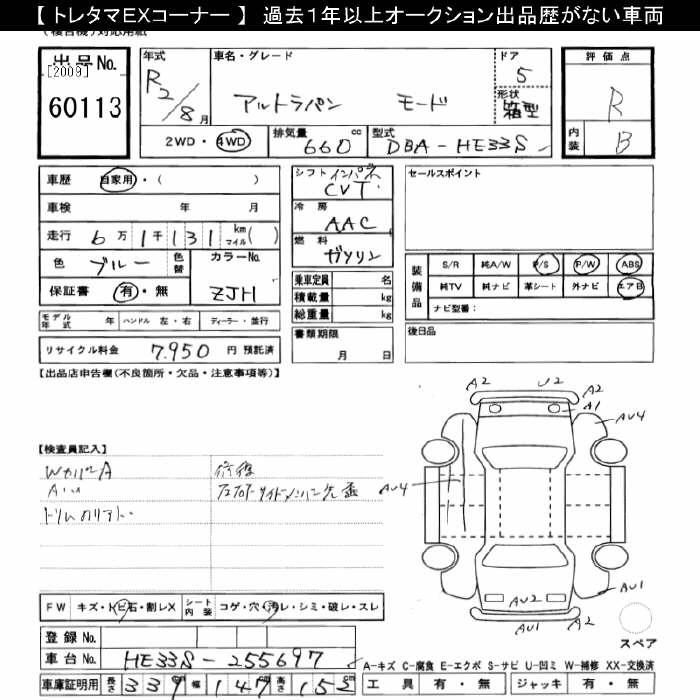 【トレタマEXコーナー】 過去１年以上オークション出品歴がない車両
出品No.
[2009]
60113
年式
R2/8月
車名・グレード
アルトラパン モード
ドア
5
形状
箱型
2WD・4WD
排気量
660 cc
型式
DBA-HE33S
評価点
R
内装
B
車歴 自家用・( )
車検 年 月
走行 6万1千131 km マイル( )
色 ブルー 色替 カラーNo.
ZJH
保証書 有・無
モデル年式 年 ハンドル 左・右 ディーラー・並行
リサイクル料金 7.950 円 預託済
シフト インパネ
CVT
冷房
AAC
燃料
ガソリン
乗車定員 名
積載量 kg
総重量 kg
書類期限
月 日
セールスポイント
装備品
S/R 純A/W P/S P/W ABS
純TV 純ナビ 革シート 外ナビ エアB
ナビ型番：
後日品
【出品店申告欄(不良箇所・欠品・注意事項等)】
A2 U2 A2
A1
AU4
【検査員記入】
WカバーA
修復
AU4
AU2
AU1
AU1
スペア
FW キズ・トビ石・割レX シート内装 コゲ・穴・汚レ・シミ・破レ・スレ
登録No.
車台No. HE33S-255697
A-キズ C-腐食 E-エクボ S-サビ U-凹ミ W-補修 XX-交換済
車庫証明用 長さ 339 幅 147 高さ 152 工具 有・無 ジャッキ 有・無